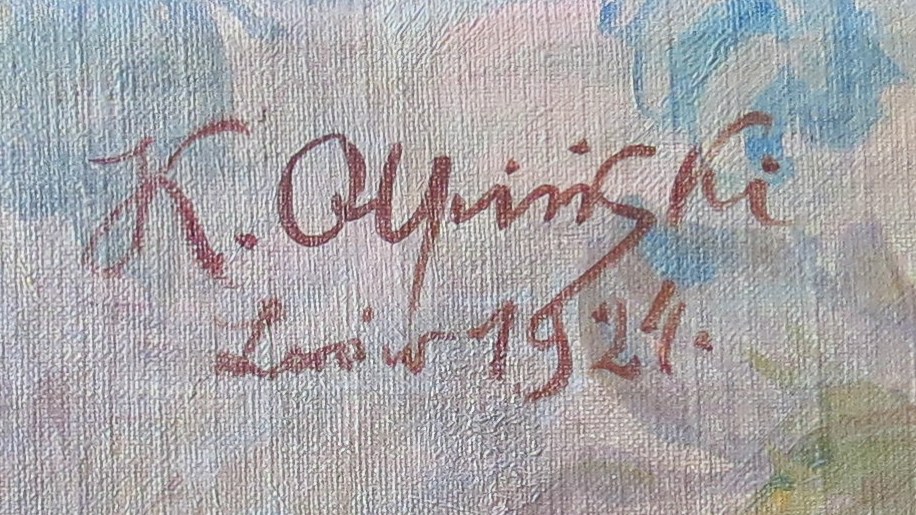 K. Olpiński
Lwów 1924.